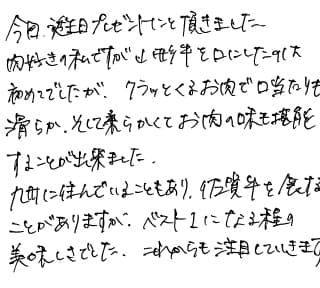 今回、誕生日プレゼントにと頂きました。
肉好きの私ですが山形牛を口にしたのは
初めてでしたが、クラッとくるお肉で口当たりも
滑らか、そして柔らかくてお肉の味も堪能
することが出来ました。
九州に住んでいることもあり、佐賀牛を食する
ことがありますが、ベスト1になる程の
美味しさでした。これからも注目していきます